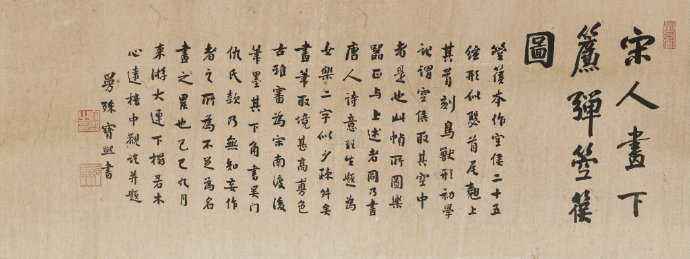 宋人畫下
簾彈箜篌
圖
箜篌本作空侯二十五
絃形似瑟首尾翹上
其首刻鳥獸形初學
記謂空侯取其空中
者是也此幀所圖樂
器正与上述者同乃畫
唐人詩意生題為
女樂二字似少疎舛矣
畫筆取境甚高色
古雅審為宋南渡後
筆墨其下角書吴门
仇氏款乃無知妄作
者之所為不足為名
畫之累也己巳九月
東游大連下榻木
心遠樓中觀并題
曼殊寶熙書